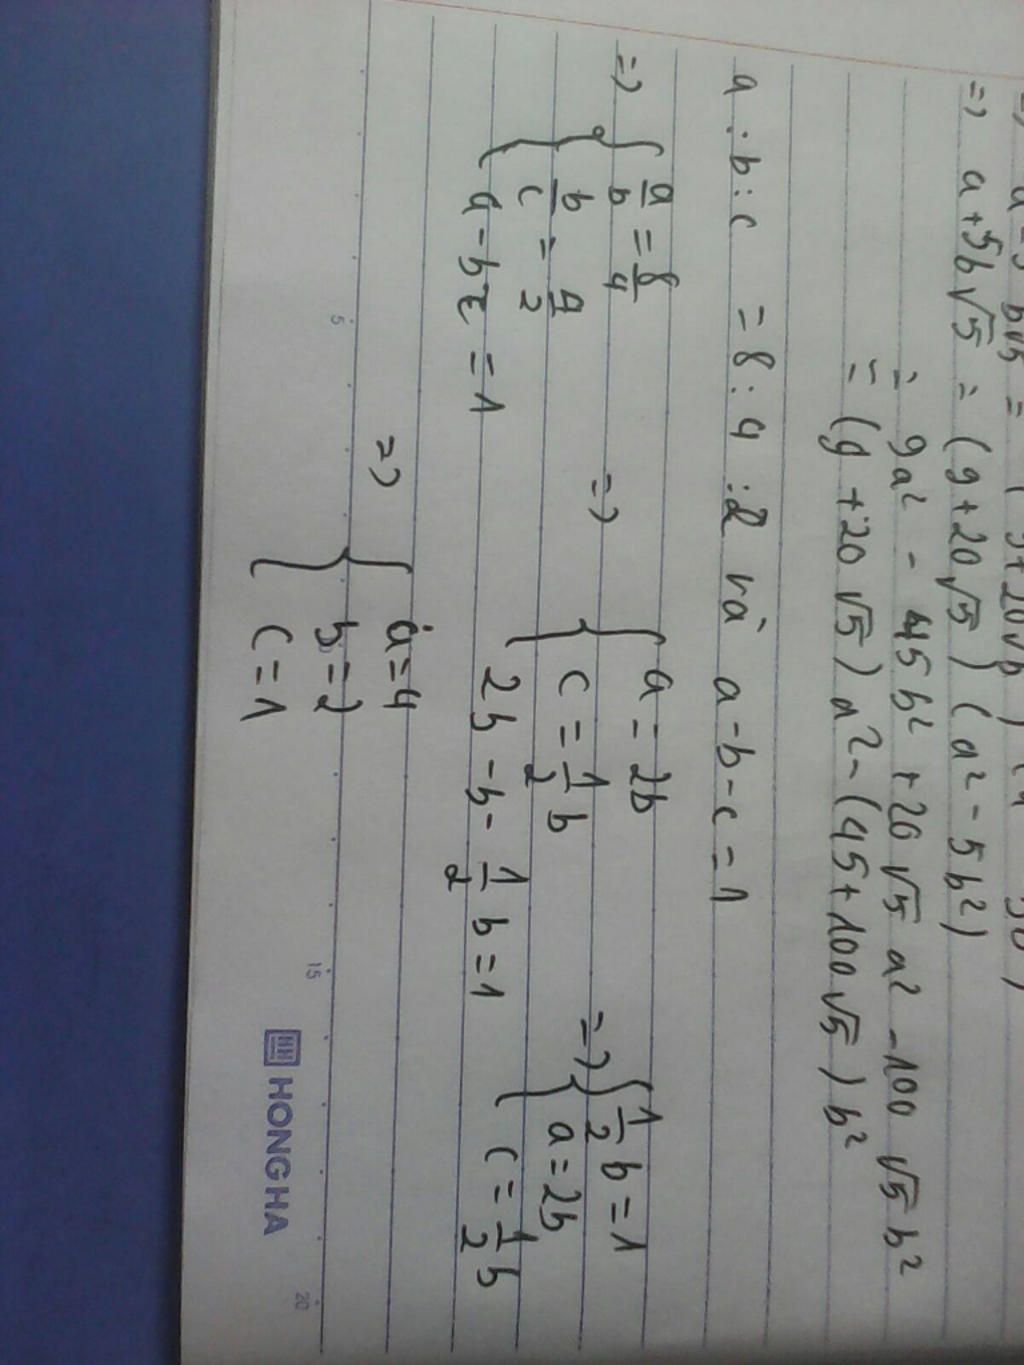 => a + 5b√5 = (9 + 20√5) (a² - 5b²)
= 9a² - 45b² + 20√5 a² - 100√5 b²
= (9 + 20√5) a² - (45 + 100√5) b²
a : b : c = 8 : 4 : 2 và a - b - c = 1
=> { a/b = 8/4 => { a = 2b => { 1/2 b = 1
b/c = 4/2 c = 1/2 b a = 2b
a - b - c = 1 2b - b - 1/2 b = 1 c = 1/2 b
=> { a = 4
b = 2
c = 1
5 15 20
HONG HA